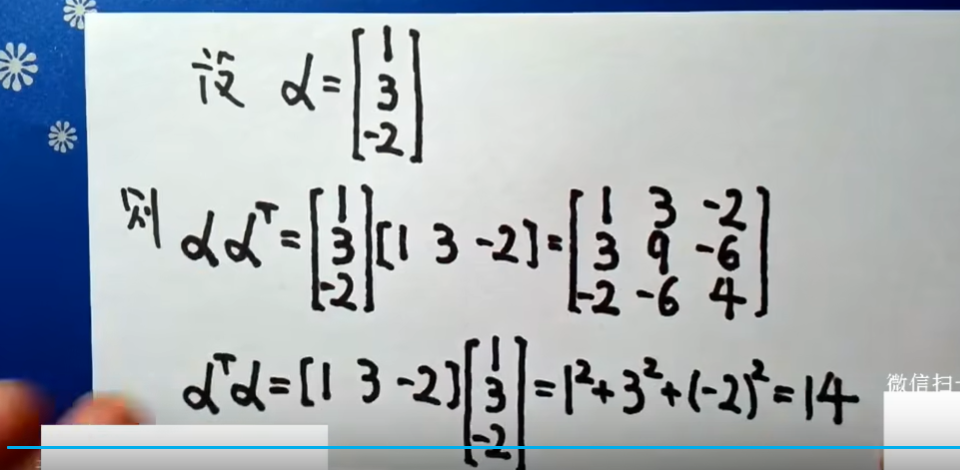 设 α = [1 3 -2]
则 αα^T = [1 3 -2] [1 3 -2] = [1 3 -2 3 9 -6 -2 -6 4]
α^Tα = [1 3 -2] [1 3 -2] = 1²+3²+(-2)² = 14
微信扫一